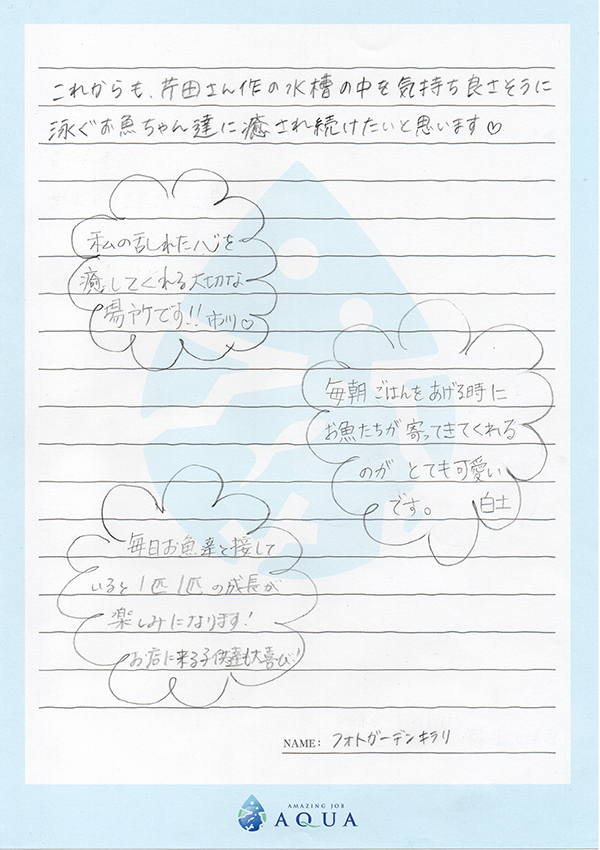 これからも、芹田さん作の水槽の中を気持ち良さそうに
泳ぐお魚ちゃん達に癒され続けたいと思います♡
私の乱れた心を
癒してくれる大切な
場所です!! 市川♡
毎朝ごはんをあげる時に
お魚たちが寄ってきてくれる
のが とても可愛い
です。 白土
毎日お魚達と接して
いると1匹1匹の成長が
楽しみになります!
お店に来る子供達も大喜び!
NAME: フォトガーデンキラリ
AMAZING JOB
AQUA